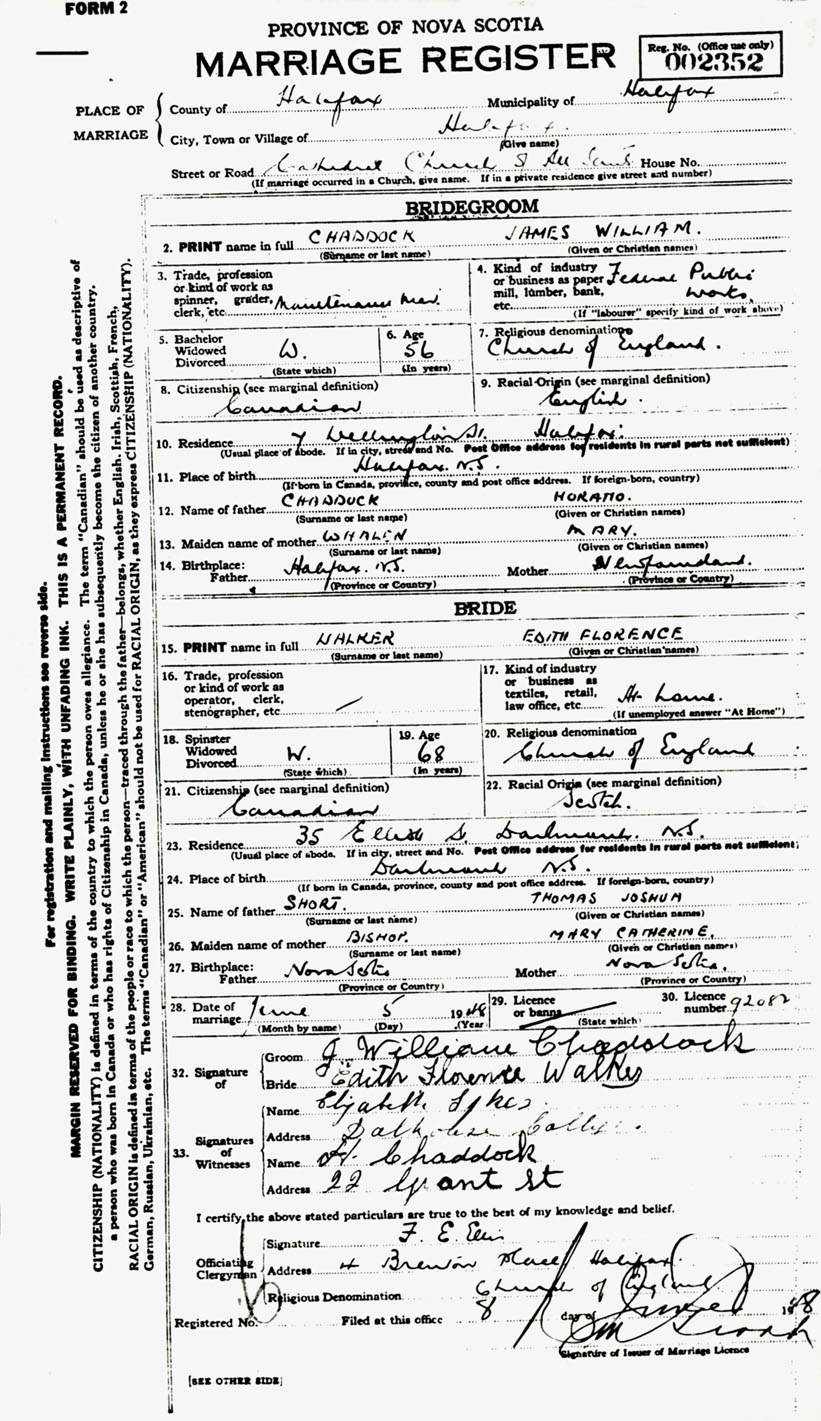 FORM 2
PROVINCE OF NOVA SCOTIA
MARRIAGE REGISTER
Reg. No. (Office use only)
002352
PLACE OF MARRIAGE
County of Halifax Municipality of Halifax
City, Town or Village of Halifax
(Give name)
Street or Road Cathedral Church of All Saints House No.
(If marriage occurred in a Church, give name. If in a private residence give street and number)
BRIDEGROOM
2. PRINT name in full CHADDOCK JAMES WILLIAM.
(Surname or last name) (Given or Christian names)
3. Trade, profession or kind of work as spinner, grader, clerk, etc. Maintenance Man.
4. Kind of industry or business as paper mill, lumber, bank, etc. Federal Public Works.
(If "labourer" specify kind of work above)
5. Bachelor Widowed Divorced W.
(State which)
6. Age 56
(In years)
7. Religious denomination
Church of England.
8. Citizenship (see marginal definition)
Canadian
9. Racial Origin (see marginal definition)
English.
10. Residence 7 Wellington St. Halifax.
(Usual place of abode. If in city, street and No. Post Office address for residents in rural parts not sufficient)
11. Place of birth Halifax N.S.
(If born in Canada, province, county and post office address. If foreign-born, country)
12. Name of father CHADDOCK HORATIO.
(Surname or last name) (Given or Christian names)
13. Maiden name of mother WHALEN MARY.
(Surname or last name) (Given or Christian names)
14. Birthplace: Father Halifax. N.S. Mother Newfoundland.
(Province or Country) (Province or Country)
BRIDE
15. PRINT name in full WALKER EDITH FLORENCE
(Surname or last name) (Given or Christian names)
16. Trade, profession or kind of work as operator, clerk, stenographer, etc
17. Kind of industry or business as textiles, retail, law office, etc. At home.
(If unemployed answer "At Home")
18. Spinster Widowed Divorced W.
(State which)
19. Age 68
(In years)
20. Religious denomination
Church of England
21. Citizenship (see marginal definition)
Canadian
22. Racial Origin (see marginal definition)
Scotch.
23. Residence 35 St. Dartmouth. N.S.
(Usual place of abode. If in city, street and No. Post Office address for residents in rural parts not sufficient;
24. Place of birth Dartmouth N.S.
(If born in Canada, province, county and post office address. If foreign-born, country)
25. Name of father SHORT. THOMAS JOSHUA
(Surname or last name) (Given or Christian names)
26. Maiden name of mother BISHOP. MARY CATHERINE.
(Surname or last name) (Given or Christian names)
27. Birthplace: Father Nova Scotia Mother Nova Scotia.
(Province or Country) (Province or Country)
28. Date of marriage June 5 1948
(Month by name) (Day) (Year
29. Licence or banns
(State which)
30. Licence number 92082
32. Signature of
Groom J. William Chaddock
Bride Edith Florence Walker
33. Signatures of Witnesses
Name Elizabeth Sykes.
Address Dalhousie College.
Name H. Chaddock
Address 22 Grant St
I certify the above stated particulars are true to the best of my knowledge and belief.
Officiating Clergyman
Signature F. E.
Address 4 Brenton Place Halifax
Religious Denomination Church of England
Registered No. Filed at this office 8 day of June 1948
Signature of Issuer of Marriage Licence
[SEE OTHER SIDE]
For registration and mailing instructions see reverse side.
MARGIN RESERVED FOR BINDING. WRITE PLAINLY, WITH UNFADING INK. THIS IS A PERMANENT RECORD.
CITIZENSHIP (NATIONALITY) is defined in terms of the country to which the person owes allegiance. The term "Canadian" should be used as descriptive of
a person who was born in Canada or who has rights of Citizenship in Canada, unless he or she has subsequently become the citizen of another country.
RACIAL ORIGIN is defined in terms of the people or race to which the person—traced through the father—belongs, whether English, Irish, Scottish, French,
German, Russian, Ukrainian, etc. The terms "Canadian" or "American" should not be used for RACIAL ORIGIN, as they express CITIZENSHIP (NATIONALITY).